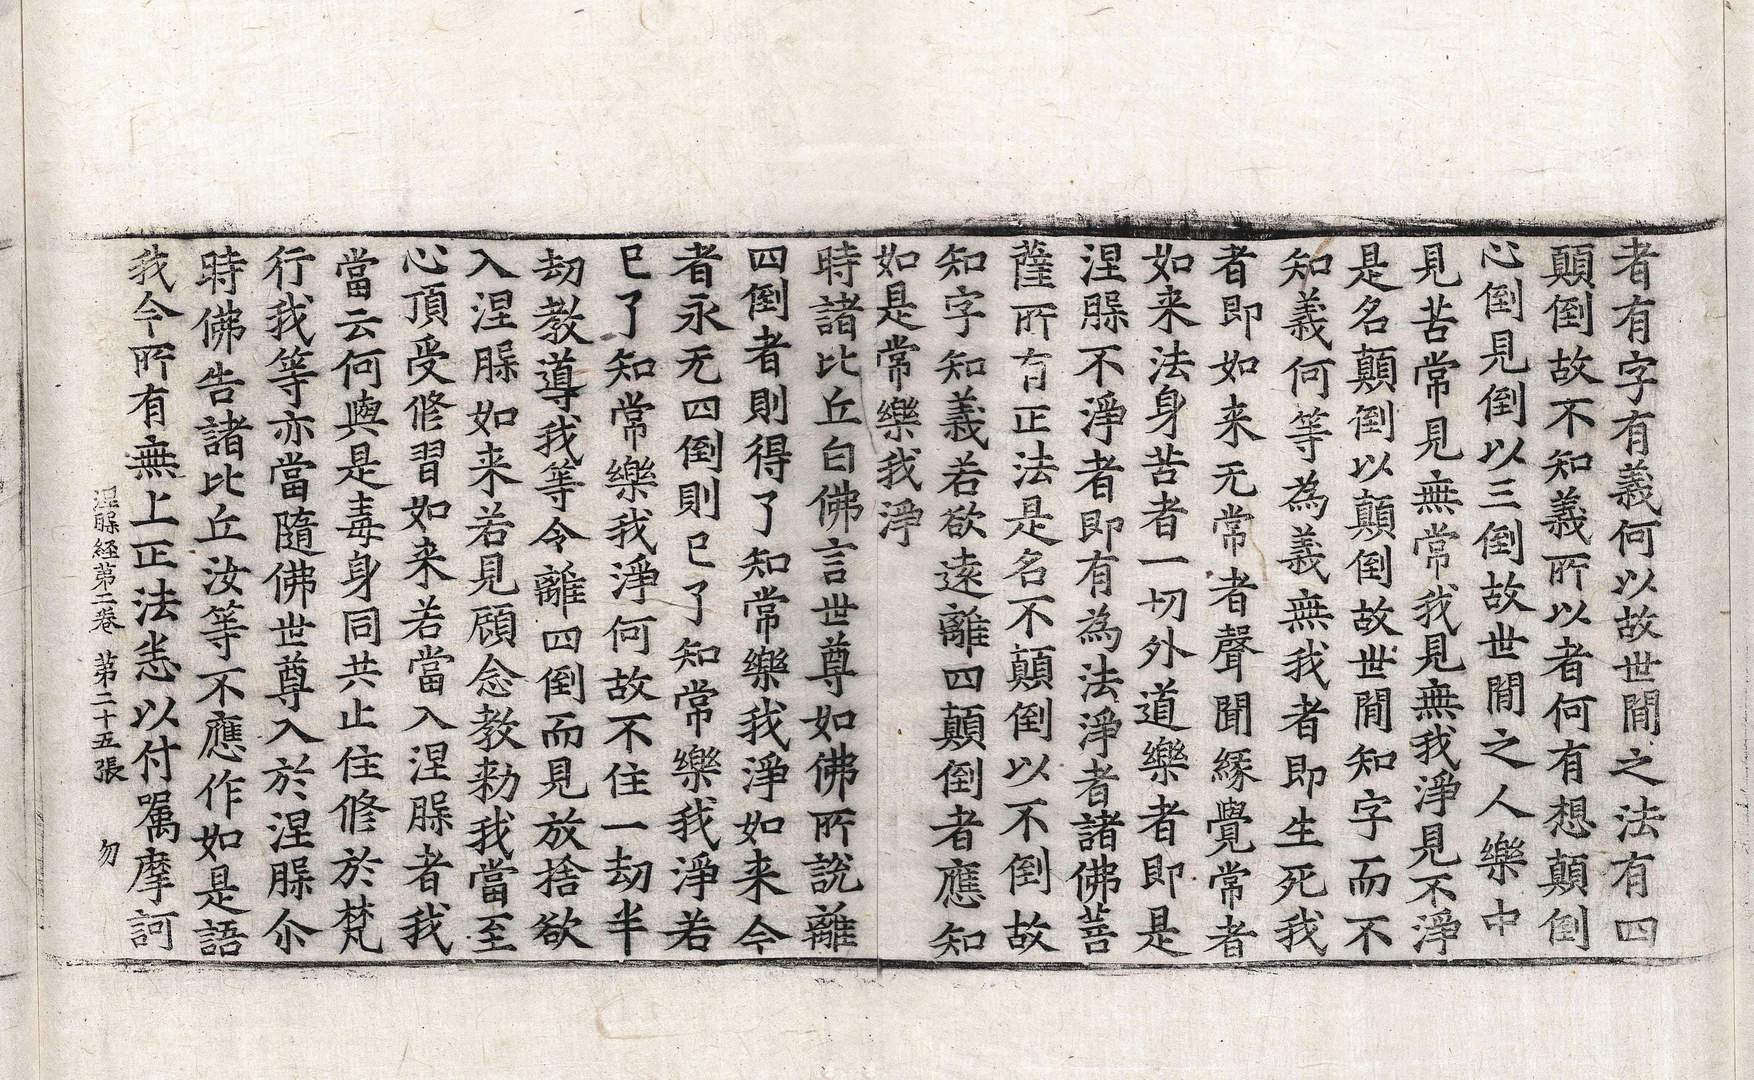 者有字有義何以故世閒之法有四
顛倒故不知義所以者何有想顛倒
心倒見倒以三倒故世閒之人樂中
見苦常見無常我見無我淨見不淨
是名顛倒以顛倒故世閒知字而不
知義何等為義無我者即生死我
者即如来无常者聲聞緣覺常者
如来法身苦者一切外道樂者即是
涅槃不淨者即有為法淨者諸佛菩
薩所有正法是名不顛倒以不倒故
知字知義若欲遠離四顛倒者應知
如是常樂我淨
時諸比丘白佛言世尊如佛所說離
四倒者則得了知常樂我淨如来今
者永无四倒則已了知常樂我淨若
已了知常樂我淨何故不住一劫半
劫教導我等令離四倒而見放捨欲
入涅槃如来若見顧念教勑我當至
心頂受修習如来若當入涅槃者我
當云何與是毒身同共止住修於梵
行我等亦當隨佛世尊入於涅槃尒
時佛告諸比丘汝等不應作如是語
我今所有無上正法悉以付嘱摩訶
涅槃経第二卷　第二十五張　勿